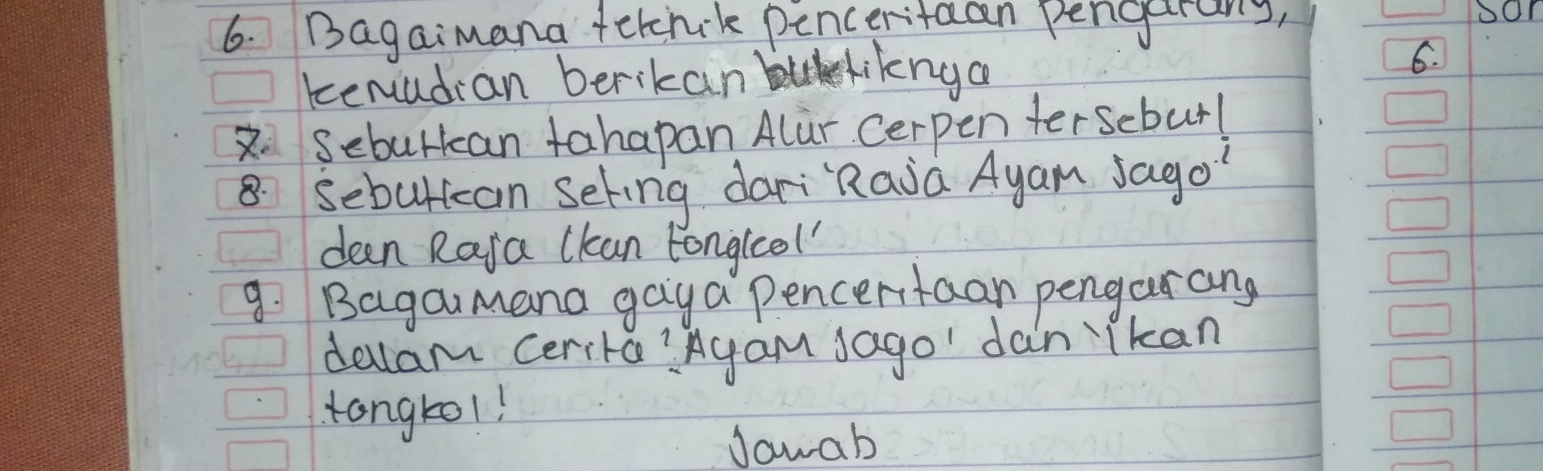 6. Bagaimana teknik penceritaan pengarang,
kemudian berikan buktiknya
7. Sebutkan tahapan Alur cerpen tersebut!
8. Sebutkan Seting dari 'Raja Ayam Jago'
dan Raja Ikan tongkol'
9. Bagaimana gaya penceritaan pengarang
dalam cerita 'Ayam jago' dan 'ikan
tongkol!
Jawab
6.